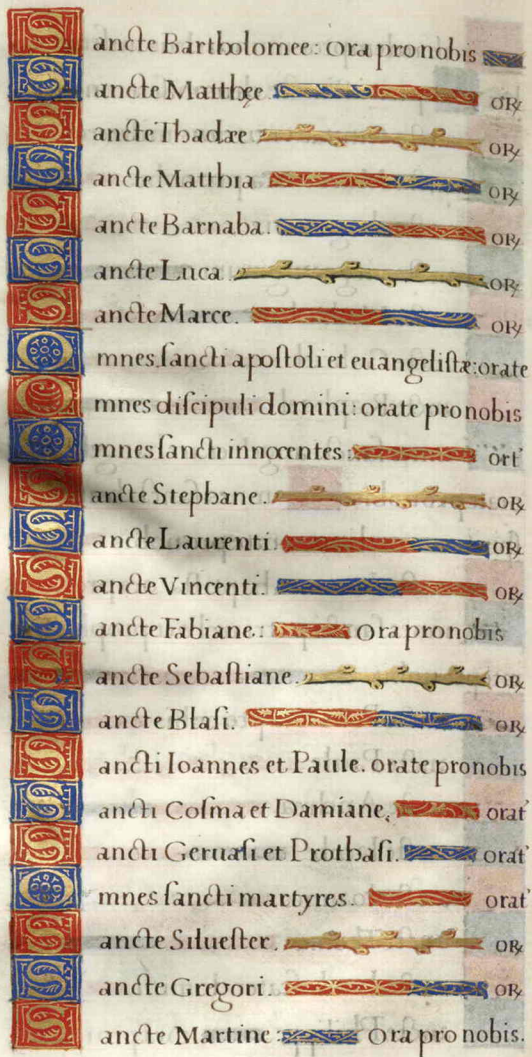 Sancte Bartholomee: Ora pro nobis
Sancte Matthęe or℞
Sancte Thadæe or℞
Sancte Matthia or℞
Sancte Barnaba. or℞
Sancte Luca or℞
Sancte Marce. or℞
Omnes ſancti apoſtoli et euangeliſtæ: orate
Omnes diſcipuli domini: orate pro nobis
Omnes ſancti innocentes: ort'
Sancte Stephane. or℞
Sancte Laurenti or℞
Sancte Vincenti. or℞
Sancte Fabiane: Ora pro nobis
Sancte Sebaſtiane. or℞
Sancte Blaſi. or℞
Sancti Ioannes et Paule. orate pro nobis
Sancti Coſma et Damiane, orat'
Sancti Geruaſi et Prothaſi. orat'
Omnes ſancti martyres. orat'
Sancte Silueſter. or℞
Sancte Gregori. or℞
Sancte Martine: Ora pro nobis.